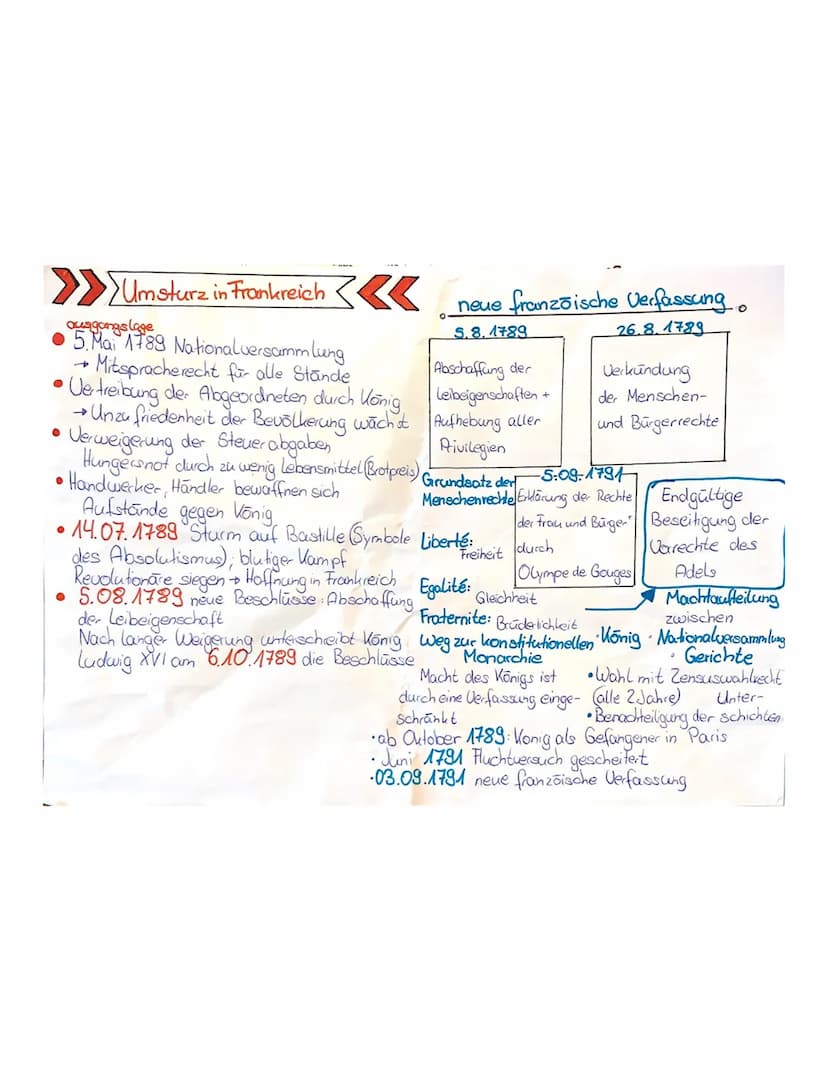 Umsturz in Frankreich
ausgangslage
5. Mai 1789 Nationalversammlung
→ Mitspracherecht für alle Stände
Vertreibung der Abgeordneten durch König
→ Unzufriedenheit der Bevölkerung wächst
Verweigerung der Steuerabgaben
Hungersnot durch zu wenig Lebensmittel (Brotpreis)
Handwerker, Händler bewaffnen sich
Aufstände gegen König
14.07.1789 Sturm auf Bastille (Symbole
des Absolutismus); blutiger Kampf
Revolutionäre siegen → Hoffnung in Frankreich
5.08.1789 neue Beschlüsse: Abschaffung
der Leibeigenschaft
Nach langer Weigerung unterschreibt König
Ludwig XVI am 6.10.1789 die Beschlüsse
neue französische Verfassung
5.8.1789
Abschaffung der
Leibeigenschaften +
Aufhebung aller
Privilegien
26.8.1789
Verkündung
der Menschen-
und Bürgerrechte
Grundsatz der
Menschenrechte
Liberté:
Freiheit
Egalité:
Gleichheit
Fraternite: Brüderlichkeit
5.09.1791
Erklärung der Rechte
der Frau und Bürger"
durch
Olympe de Gouges
Endgültige
Beseitigung der
Vorrechte des
Adels
Weg zur konstitutionellen
Monarchie
Macht des Königs ist
durch eine Verfassung einge-
schränkt
Machtaufteilung
zwischen
· König · Nationalversammlung
· Gerichte
• Wahl mit Zensuswahlrecht
(alle 2 Jahre)
• Benachteiligung der Unter-
schichten
· ab Oktober 1789: König als Gefangener in Paris
· Juni 1791 Fluchtversuch gescheitert
· 03.09.1791 neue französische Verfassung